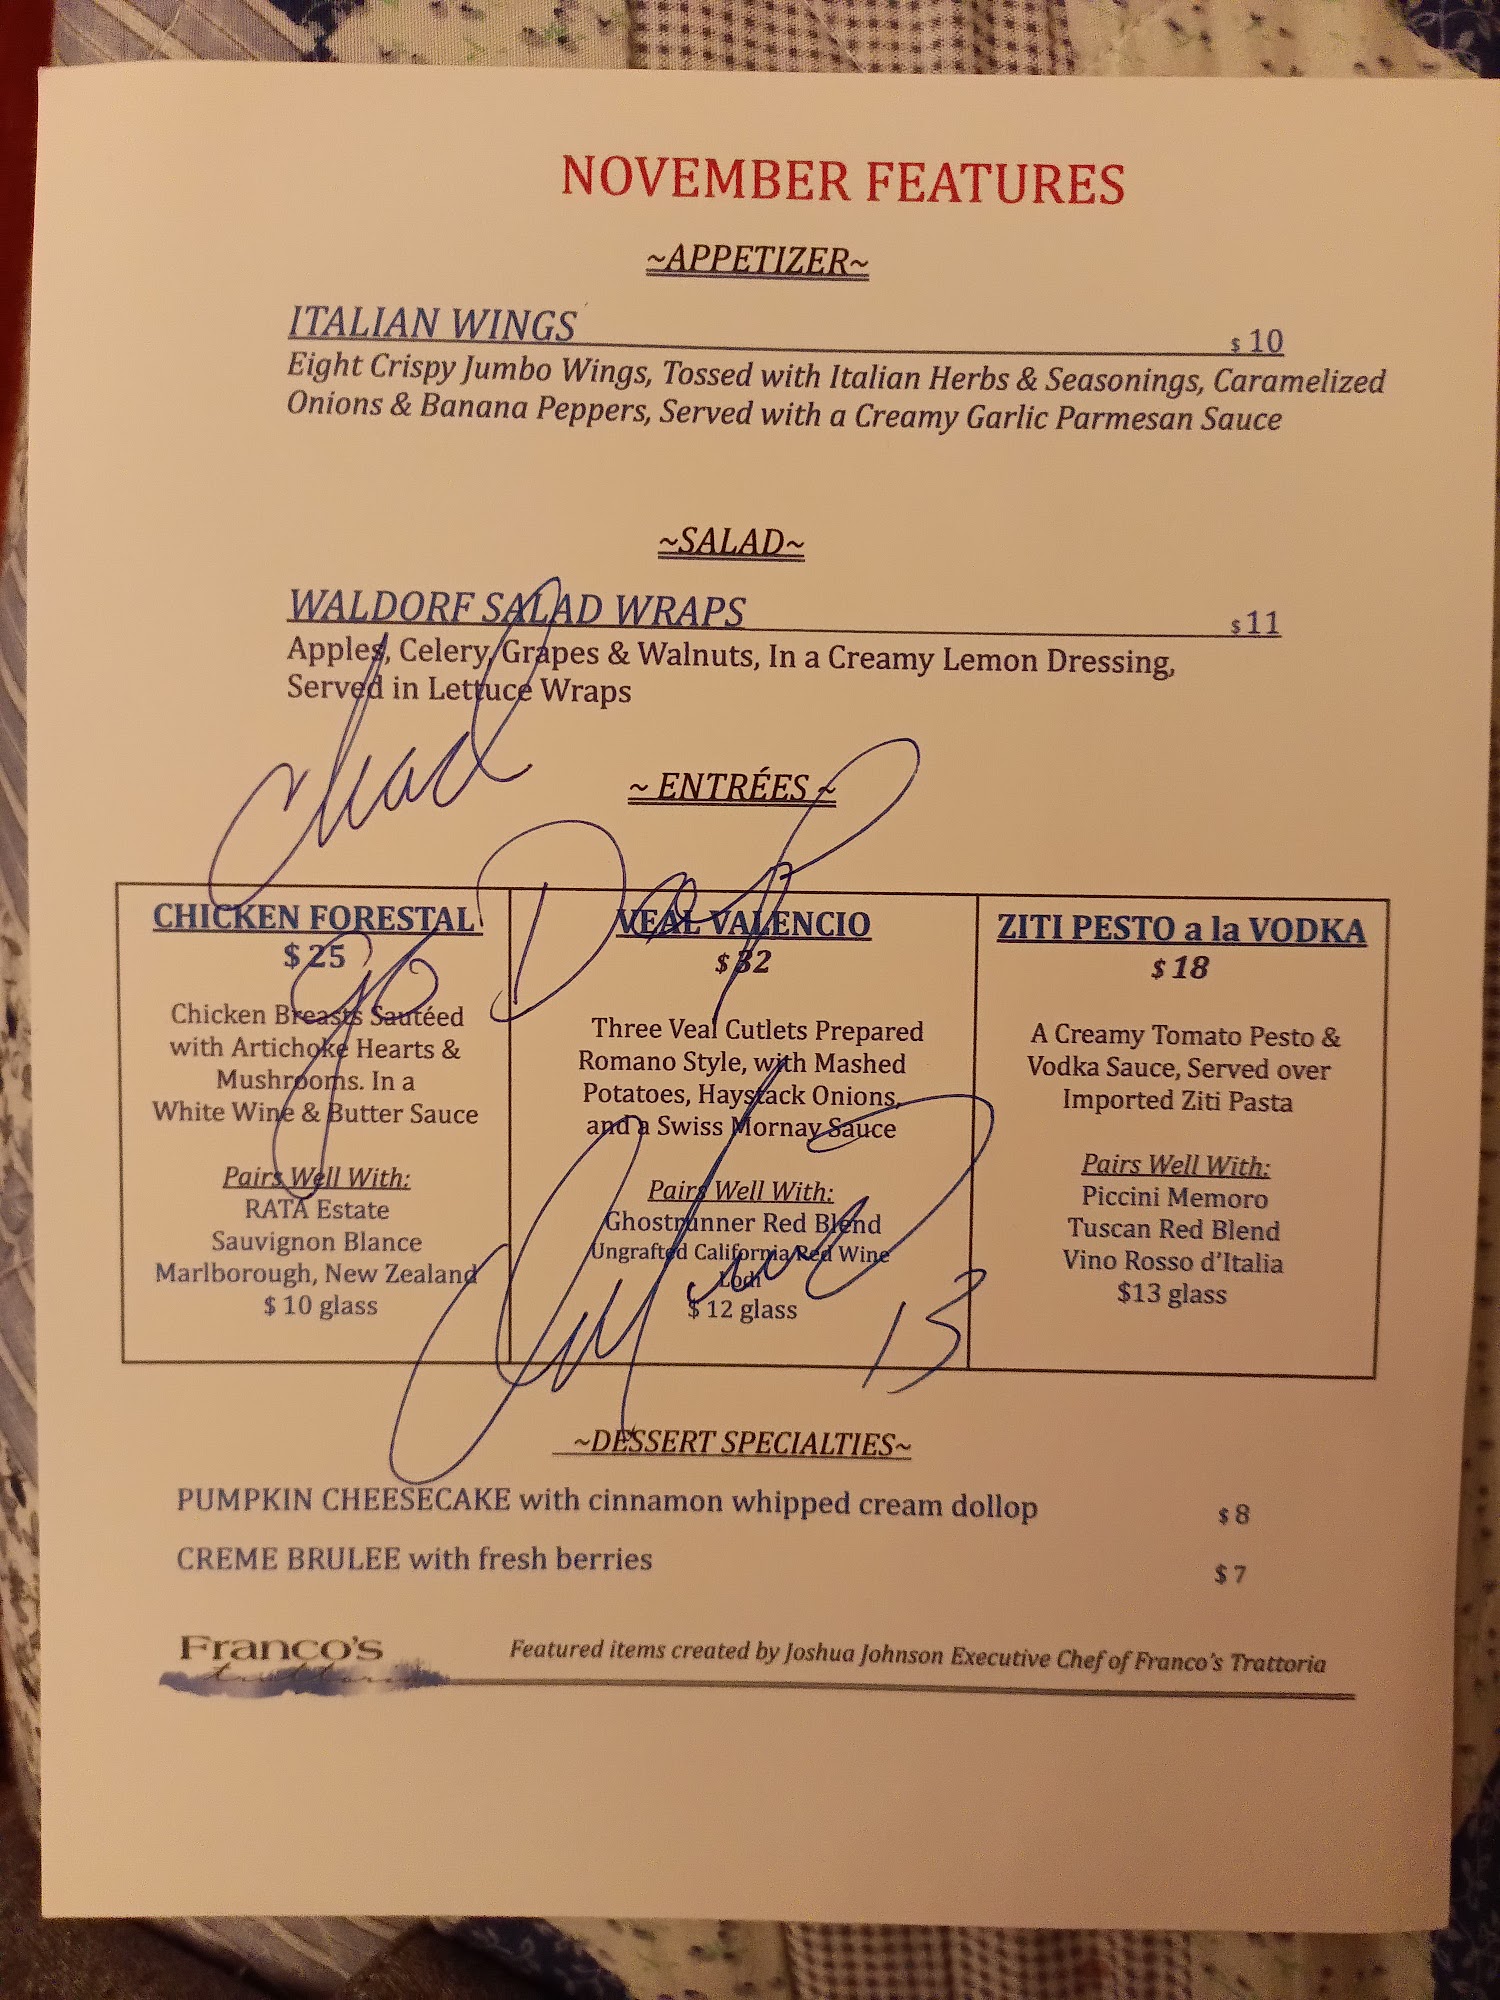 NOVEMBER FEATURES
~APPETIZER~
ITALIAN WINGS $ 10
Eight Crispy Jumbo Wings, Tossed with Italian Herbs & Seasonings, Caramelized
Onions & Banana Peppers, Served with a Creamy Garlic Parmesan Sauce
~SALAD~
WALDORF SALAD WRAPS $ 11
Apples, Celery, Grapes & Walnuts, In a Creamy Lemon Dressing,
Served in Lettuce Wraps
Chad
~ ENTRÉES ~
Go
CHICKEN FORESTAL
$ 25
Chicken Breasts Sautéed
with Artichoke Hearts &
Mushrooms. In a
White Wine & Butter Sauce
Pairs Well With:
RATA Estate
Sauvignon Blance
Marlborough, New Zealand
$ 10 glass
VEAL VALENCIO
$ 32
Three Veal Cutlets Prepared
Romano Style, with Mashed
Potatoes, Haystack Onions,
and a Swiss Mornay Sauce
Pairs Well With:
Ghostrunner Red Blend
Ungrafted California Red Wine
Lodi
$ 12 glass
13
ZITI PESTO a la VODKA
$ 18
A Creamy Tomato Pesto &
Vodka Sauce, Served over
Imported Ziti Pasta
Pairs Well With:
Piccini Memoro
Tuscan Red Blend
Vino Rosso d'Italia
$13 glass
~DESSERT SPECIALTIES~
PUMPKIN CHEESECAKE with cinnamon whipped cream dollop $ 8
CREME BRULEE with fresh berries $ 7
Franco's
trattoria
Featured items created by Joshua Johnson Executive Chef of Franco's Trattoria